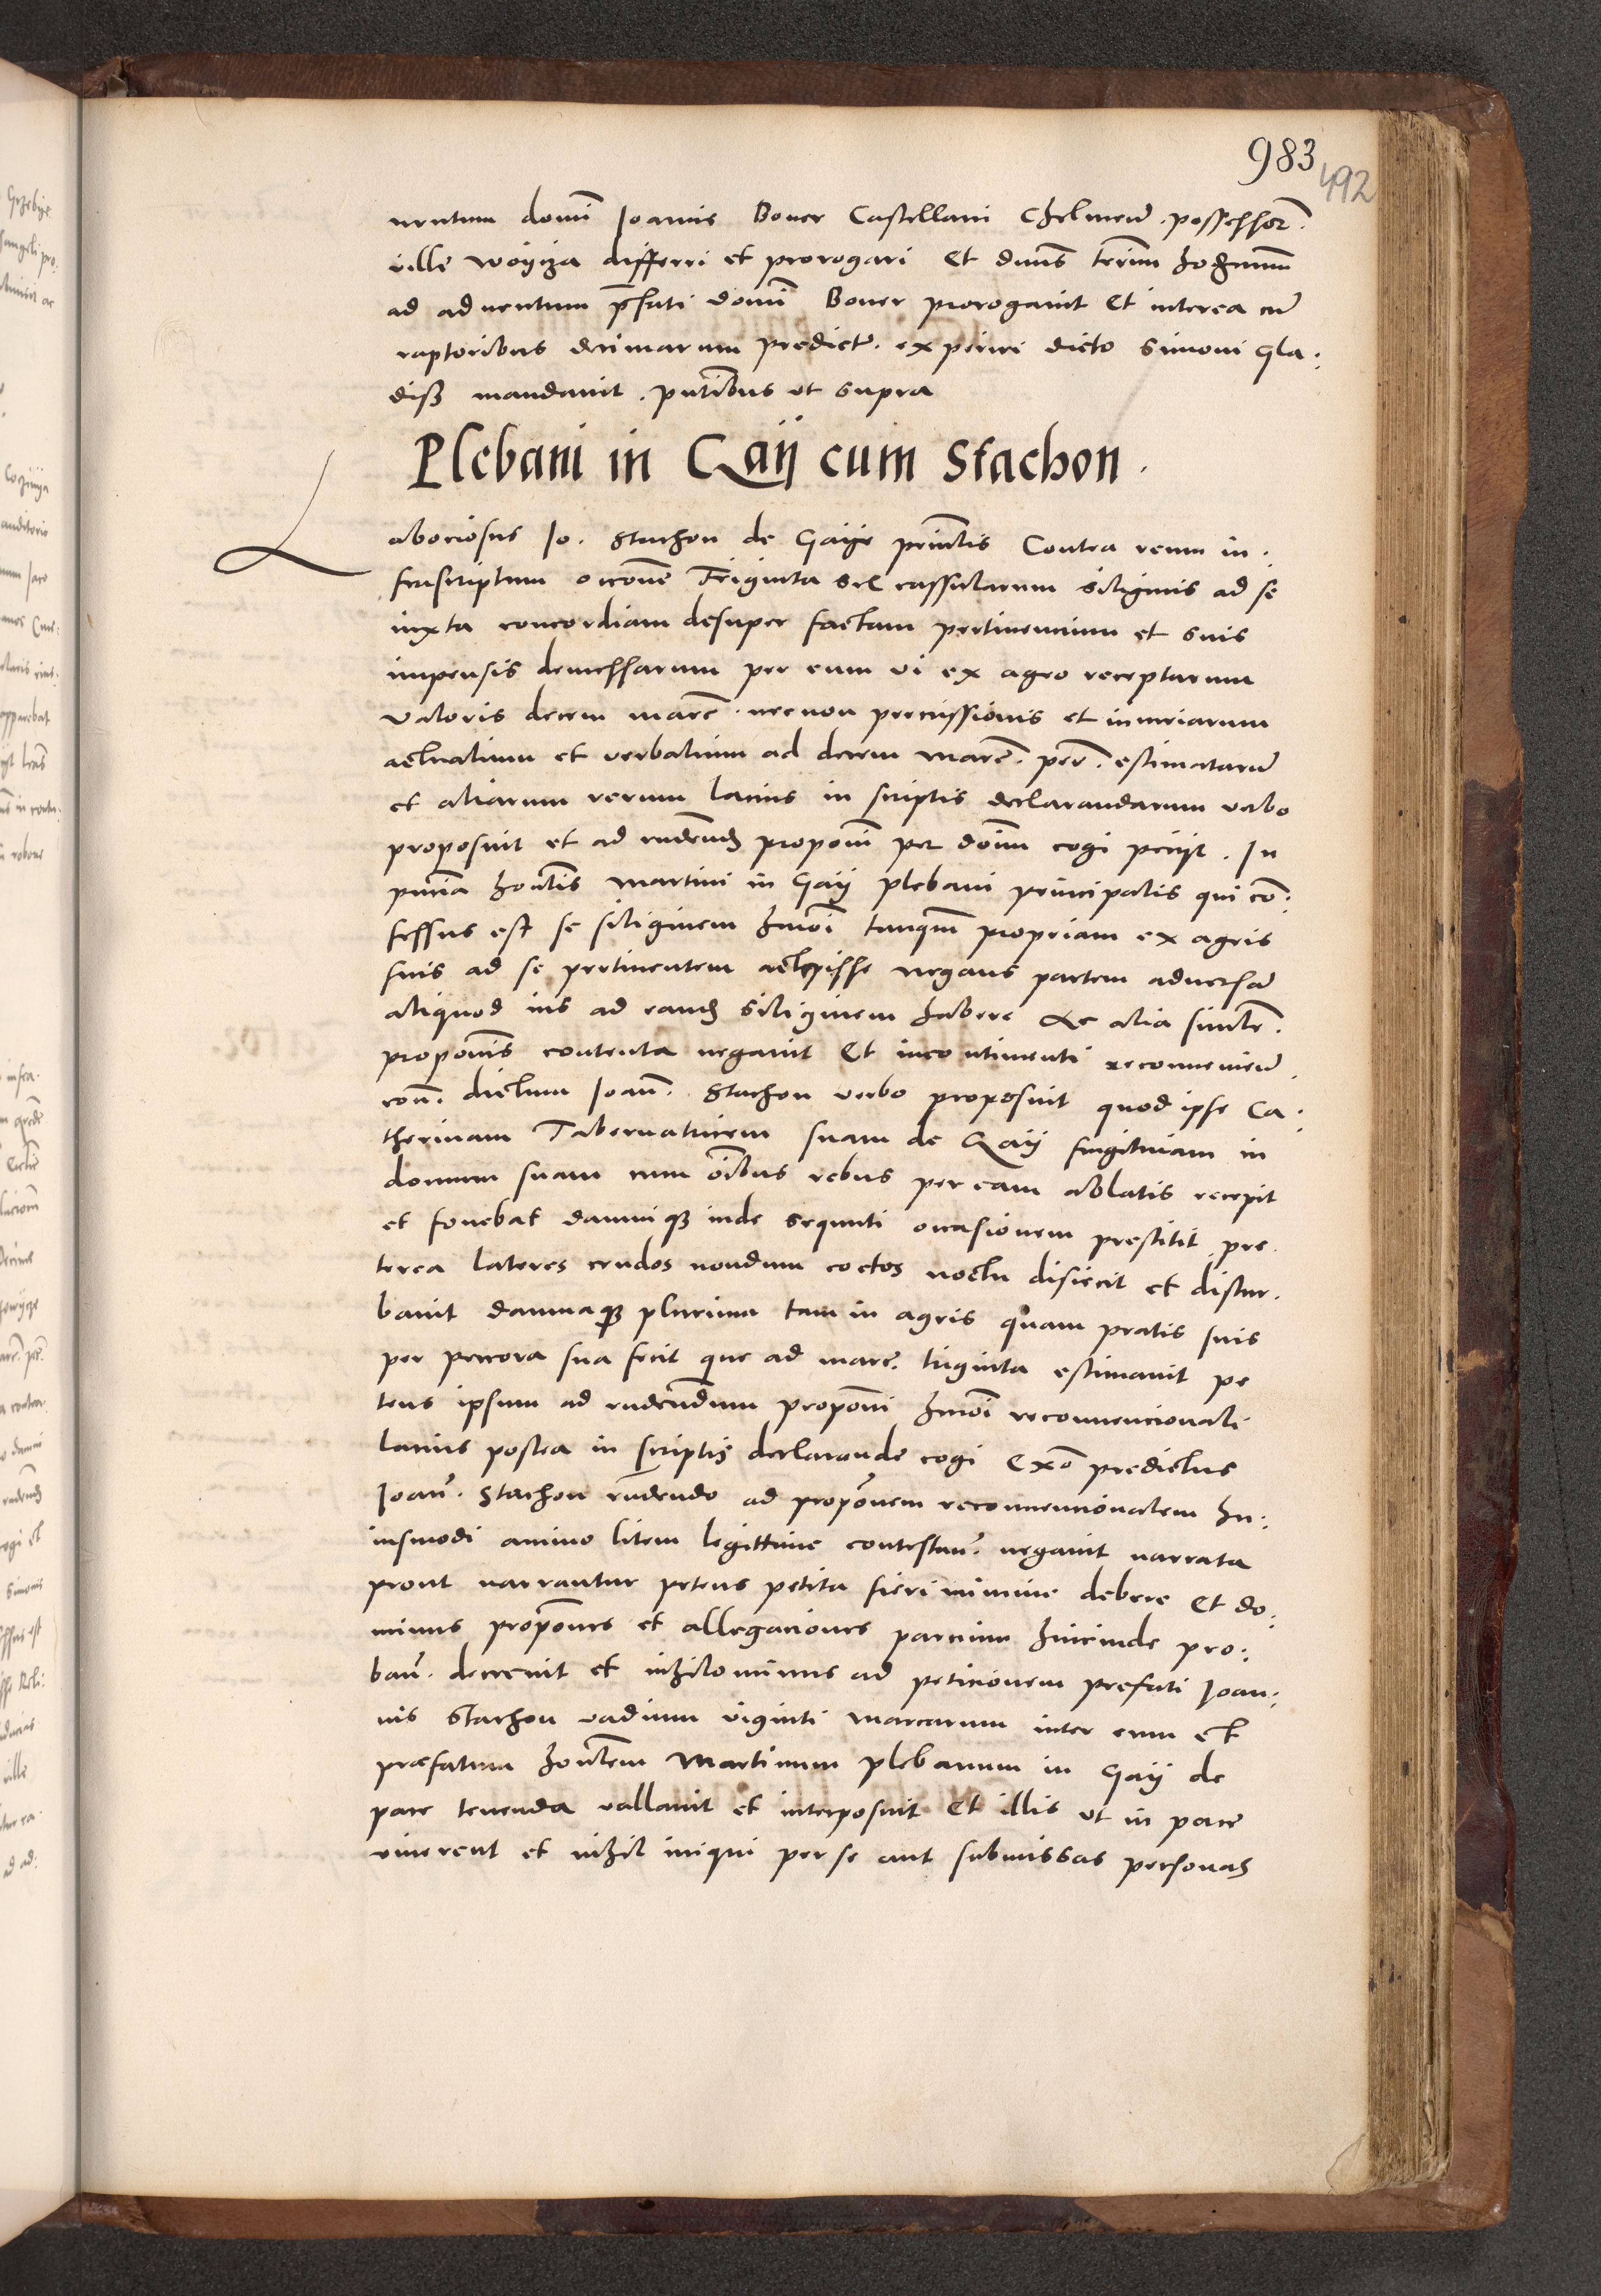 983
492
ventum domi Joannis Boner Castellani Chelmeñ. possessor.
ville Woycza differri et prorogari Et dnus termi hodiernum
ad adventum pfati domi Boner prorogavit Et interea cu
raptoribus decimarum predict. experiri dicto Simoni Gla:
disz mandavit. pntibus ut supra
Plebani in Gaij cum Stachon.
Laboriosus Jo. Stachon de Gaije principlis Contra reum in:
frascriptum occone Triginta sex cassularum siliginis ad se
iuxta concordiam desuper factam pertinencium et suis
impensis demessarum per eum vi ex agro receptarum
valoris decem marc. necnon percussionis et iniuriarum
actualium et verbalium ad decem marc. per. estimataru
et aliarum rerum lacius in scriptis declarandarum verbo
proposuit et ad rndend proponi per domi cogi peciit. In
pncia honlis Martini in Gaij plebani principalis qui co:
fessus est se siliginem hmoi tanqm propriam ex agris
suis ad se pertinentem accepisse negans partem adversa
aliquod ius ad eand siliginem habere Ac alia simlr.
proponis contenta negavit Et incontinenti reconveniend
con. dictum Joan. Stachon verbo proposuit quod ipse Ca:
therinam Tabernatricem suam de Gaij fugitivam in
domum suam cum oibus rebus per eam ablatis recepit
et fovebat damnique inde sequuti occasionem prestitit pre
terea lateres crudos nondum coctos noctu disiecit et distur.
bavit damnaque plurima tam in agris quam pratis suis
per peccora sua fecit que ad marc. triginta estimavit pe
tens ipsum ad rndendum proponi hmoi reconvencionali
lacius postea in scriptis declarande cogi Exo predictus
Joan. Stachon rndendo ad proponem reconvencionalem hu:
iusmodi animo litem legittime contestan. negavit narrata
prout narrantur petens petita fieri minime debere Et do:
minus propones et allegaciones parcium hincinde pro:
ban. decrevit et nihilominus ad peticionem prefati Joan:
nis Stachon vadium viginti marcarum inter eum et
præfatum honlem Martinum plebanum in Gaij de
pace tenenda vallavit et interposuit Et illis ut in pace
viverent et nihil iniqui per se aut submissas personas